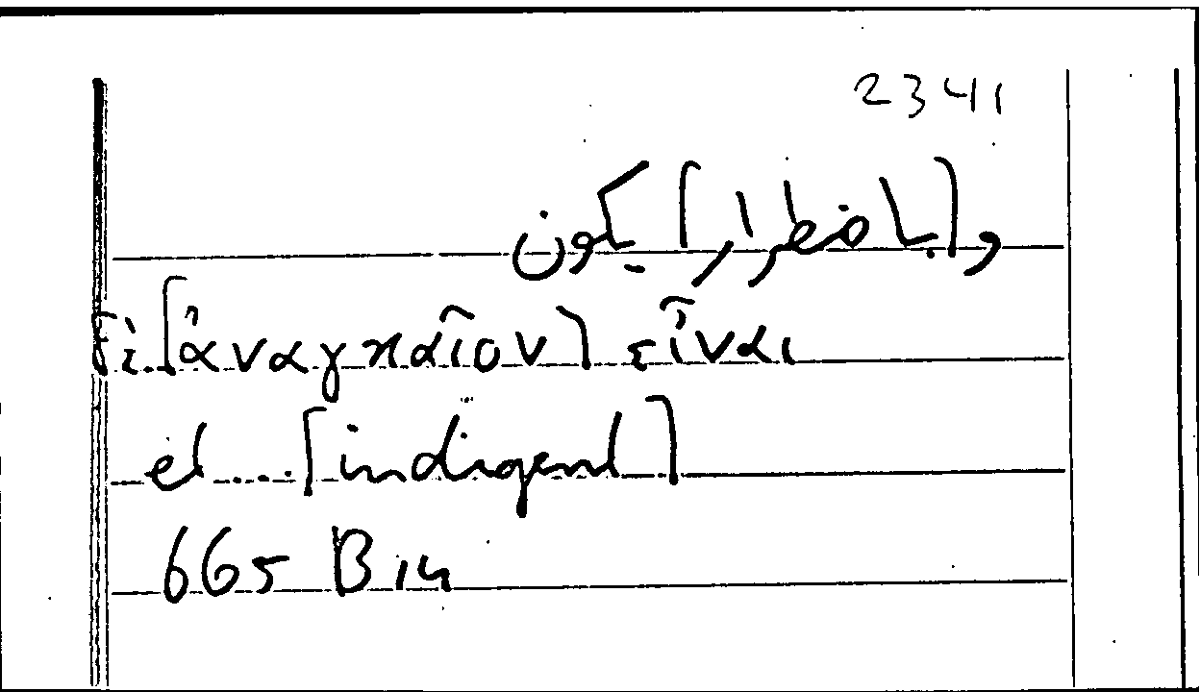 2341
و[باضطرار] يكون
δὲ..[ἀναγκαῖον] εἶναι
et....[indigent]
665 B 14